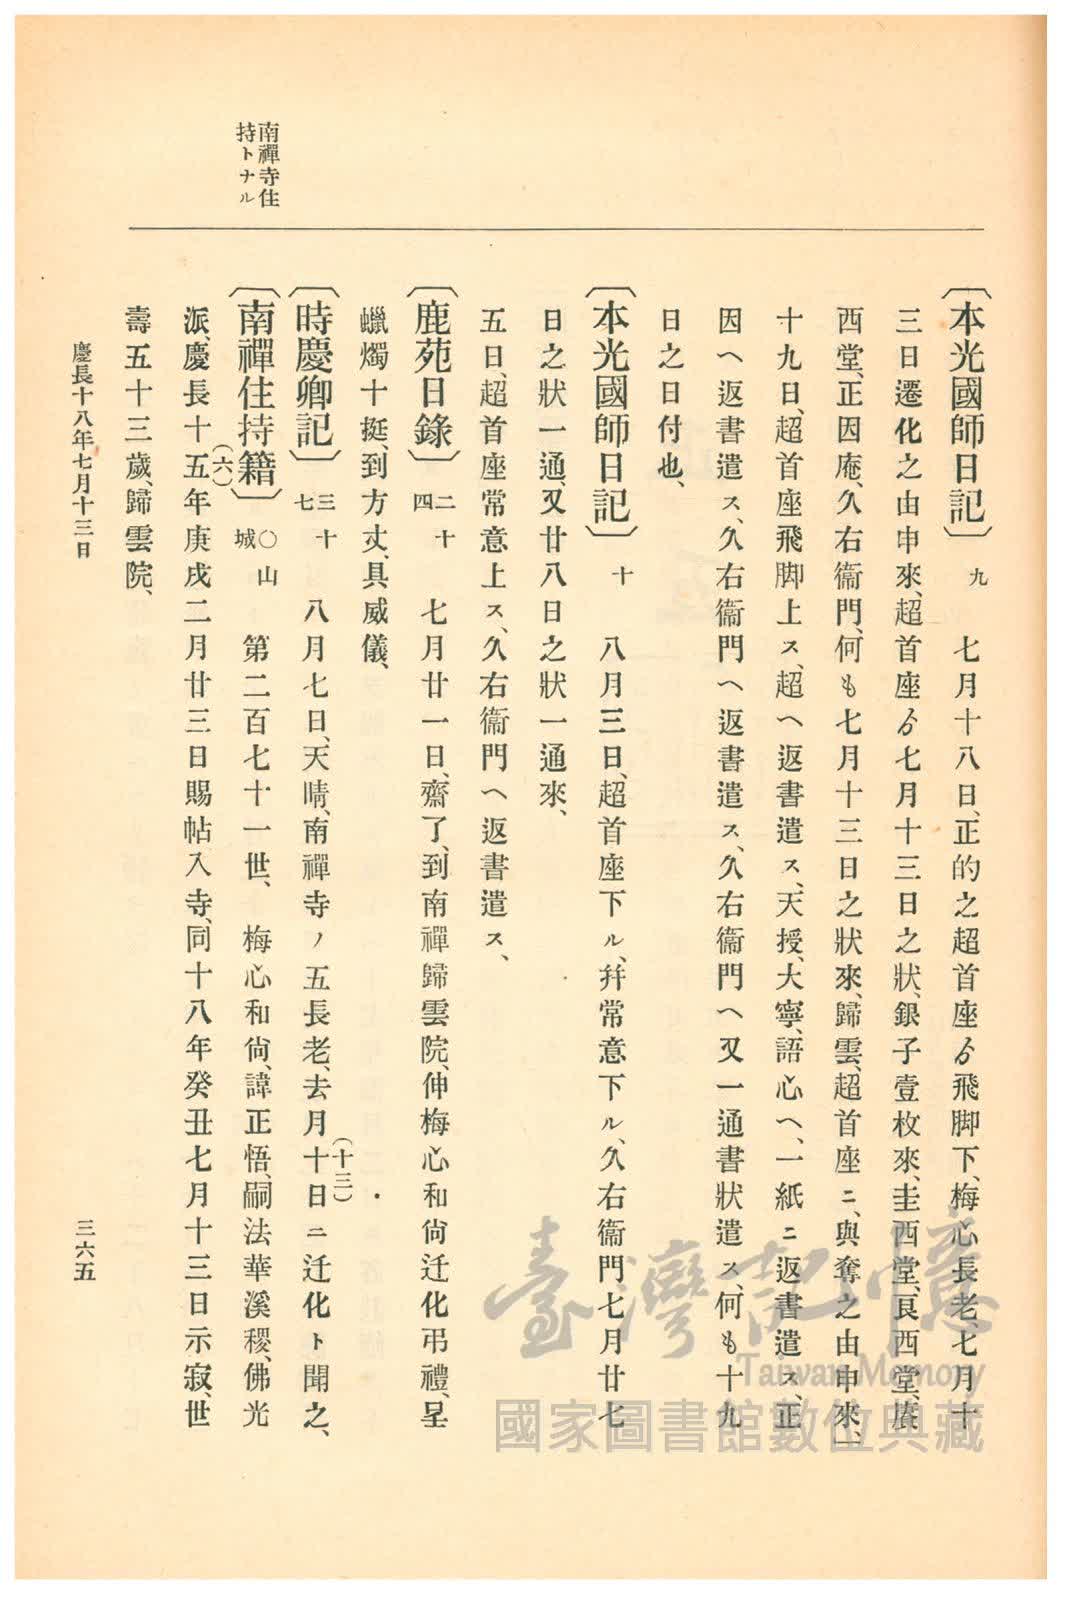 南禪寺住
持トナル
〔本光國師日記〕九 七月十八日、正的之超首座ゟ飛脚下、梅心長老、七月十
三日遷化之由申來、超首座ゟ七月十三日之狀、銀子壹枚來、圭西堂、良西堂、
西堂、正因庵、久右衞門、何も七月十三日之狀來、歸雲、超首座ニ、與奪之由申來、一
十九日、超首座飛脚上ス、超へ返書遣ス、天授、大寧、語心へ、一紙ニ返書遣ス、正
因へ返書遣ス、久右衞門へ返書遣ス、久右衞門へ又一通書狀遣ス、何も十九
日之日付也、
〔本光國師日記〕十 八月三日、超首座下ル、幷常意下ル、久右衞門七月廿七
日之狀一通、又廿八日之狀一通來、
五日、超首座常意上ス、久右衞門へ返書遣ス、
〔鹿苑日錄〕二十四 七月廿一日、齋了、到南禪歸雲院、伸梅心和尙迁化弔禮、呈
蠟燭十挺、到方丈、具威儀、
〔時慶卿記〕三十七 八月七日、天晴、南禪寺ノ五長老、去月十(十三)日ニ迁化ト聞之、
〔南禪住持籍〕○山城 第二百七十一世、梅心和尙、諱正悟、嗣法華溪稷、佛光
派、慶長十五(六)年庚戌二月廿三日賜帖入寺、同十八年癸丑七月十三日示寂、世
壽五十三歲、歸雲院、
慶長十八年七月十三日
三六五
臺灣記憶
Taiwan Memory
國家圖書館數位典藏